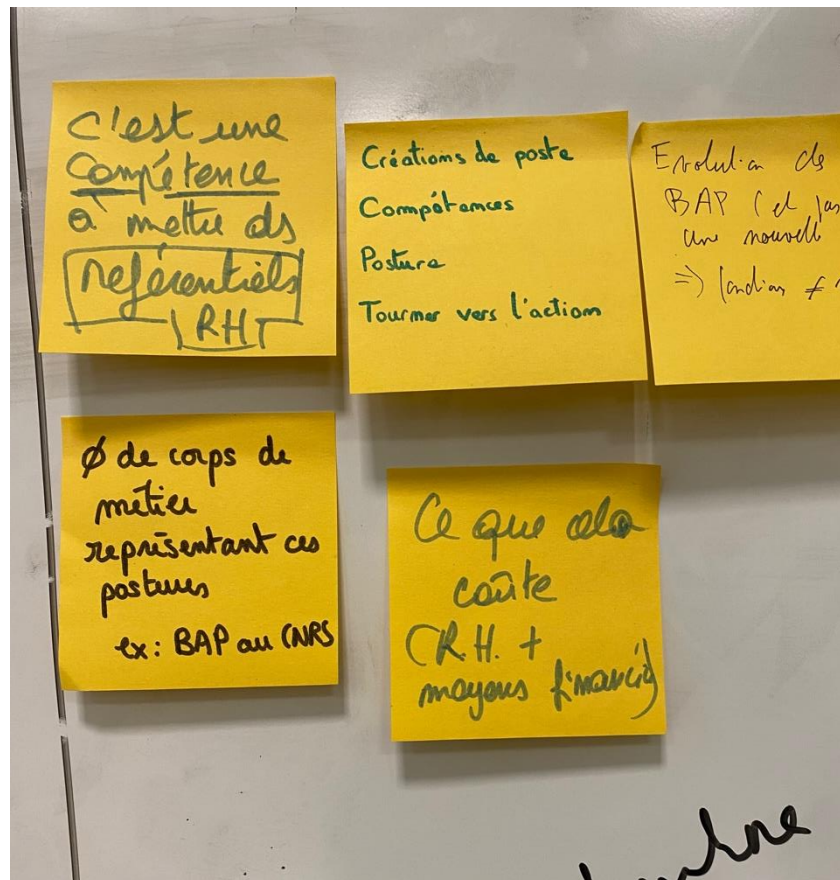 C'est une
Compétence
à mettre ds
référentiels
RH
Créations de poste
Compétences
Posture
Tourner vers l'action
Evolution des
BAP (et pas
une nouvell
=>
Ø de corps de
métier
représentant ces
postures
ex: BAP au CNRS
Ce que cela
coûte
(R.H. +
moyens financié)